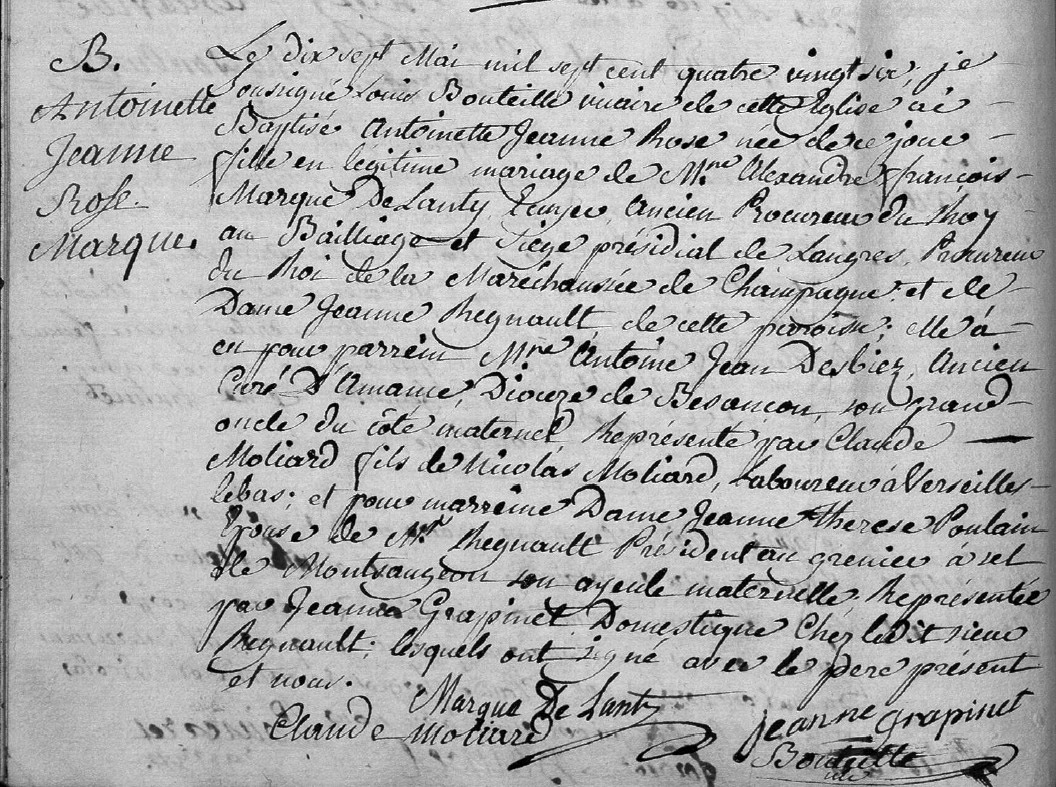 B.
Antoinette
Jeanne
Rose
Marque.
Le dix sept Mai mil sept cent quatre vingt six, je
sousigné Louis Bouteille vicaire de cette Eglise ai
Baptisé Antoinette Jeanne Rose née de ce jour
fille en légitime mariage de M.re Alexandre françois
Marque De Lanty Ecuyer, Ancien Procureur du Roy
au Bailliage et Siège présidial de Langres, Procureur
du Roi de la Maréchaussée de Champagne: et de
Dame Jeanne Regnault, de cette paroisse; elle à
eu pour parrein Mre Antoine Jean Desbiez, Ancien
Curé D'Amance, Diocèze de Besançon, son grand
oncle du côté maternel, Représenté par Claude
Moliard fils de Nicolas Moliard, Laboureur à Verseilles
lebas; et pour marreine Dame Jeanne Therese Poulain
Epouse de Mr. Regnault Président au grenier à sel
de Montsaugeon son ayeule maternelle, Représentée
par Jeanne Grapinet Domestique Chez le Dit sieur
Regnault; lesquels ont signé avec le pere présent
et nous.
Marque De Lanty
Claude moliard
jeanne grapinet
Bouteille
vic